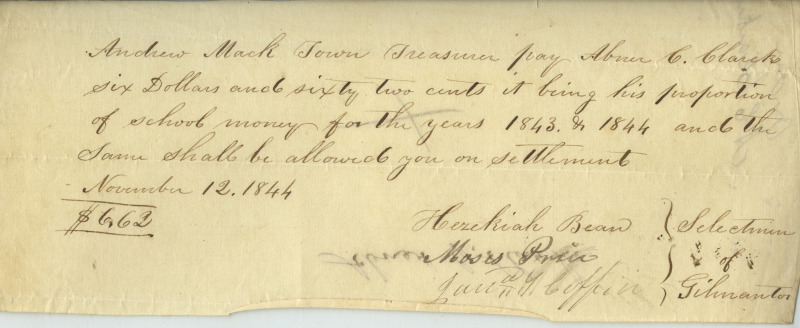 Andrew Mack Town Treasurer pay Abner C. Clarck
six Dollars and sixty two cents it being his proportion
of school money for the years 1843. & 1844 and the
Same shall be allowed you on settlement
November 12. 1844
$6,62
Hezekiah Bean } Selectmen
Moses Price } of
Coffin } Gilmanton